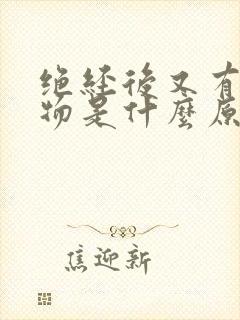 绝经後又有
物是什麼原
焦迎新